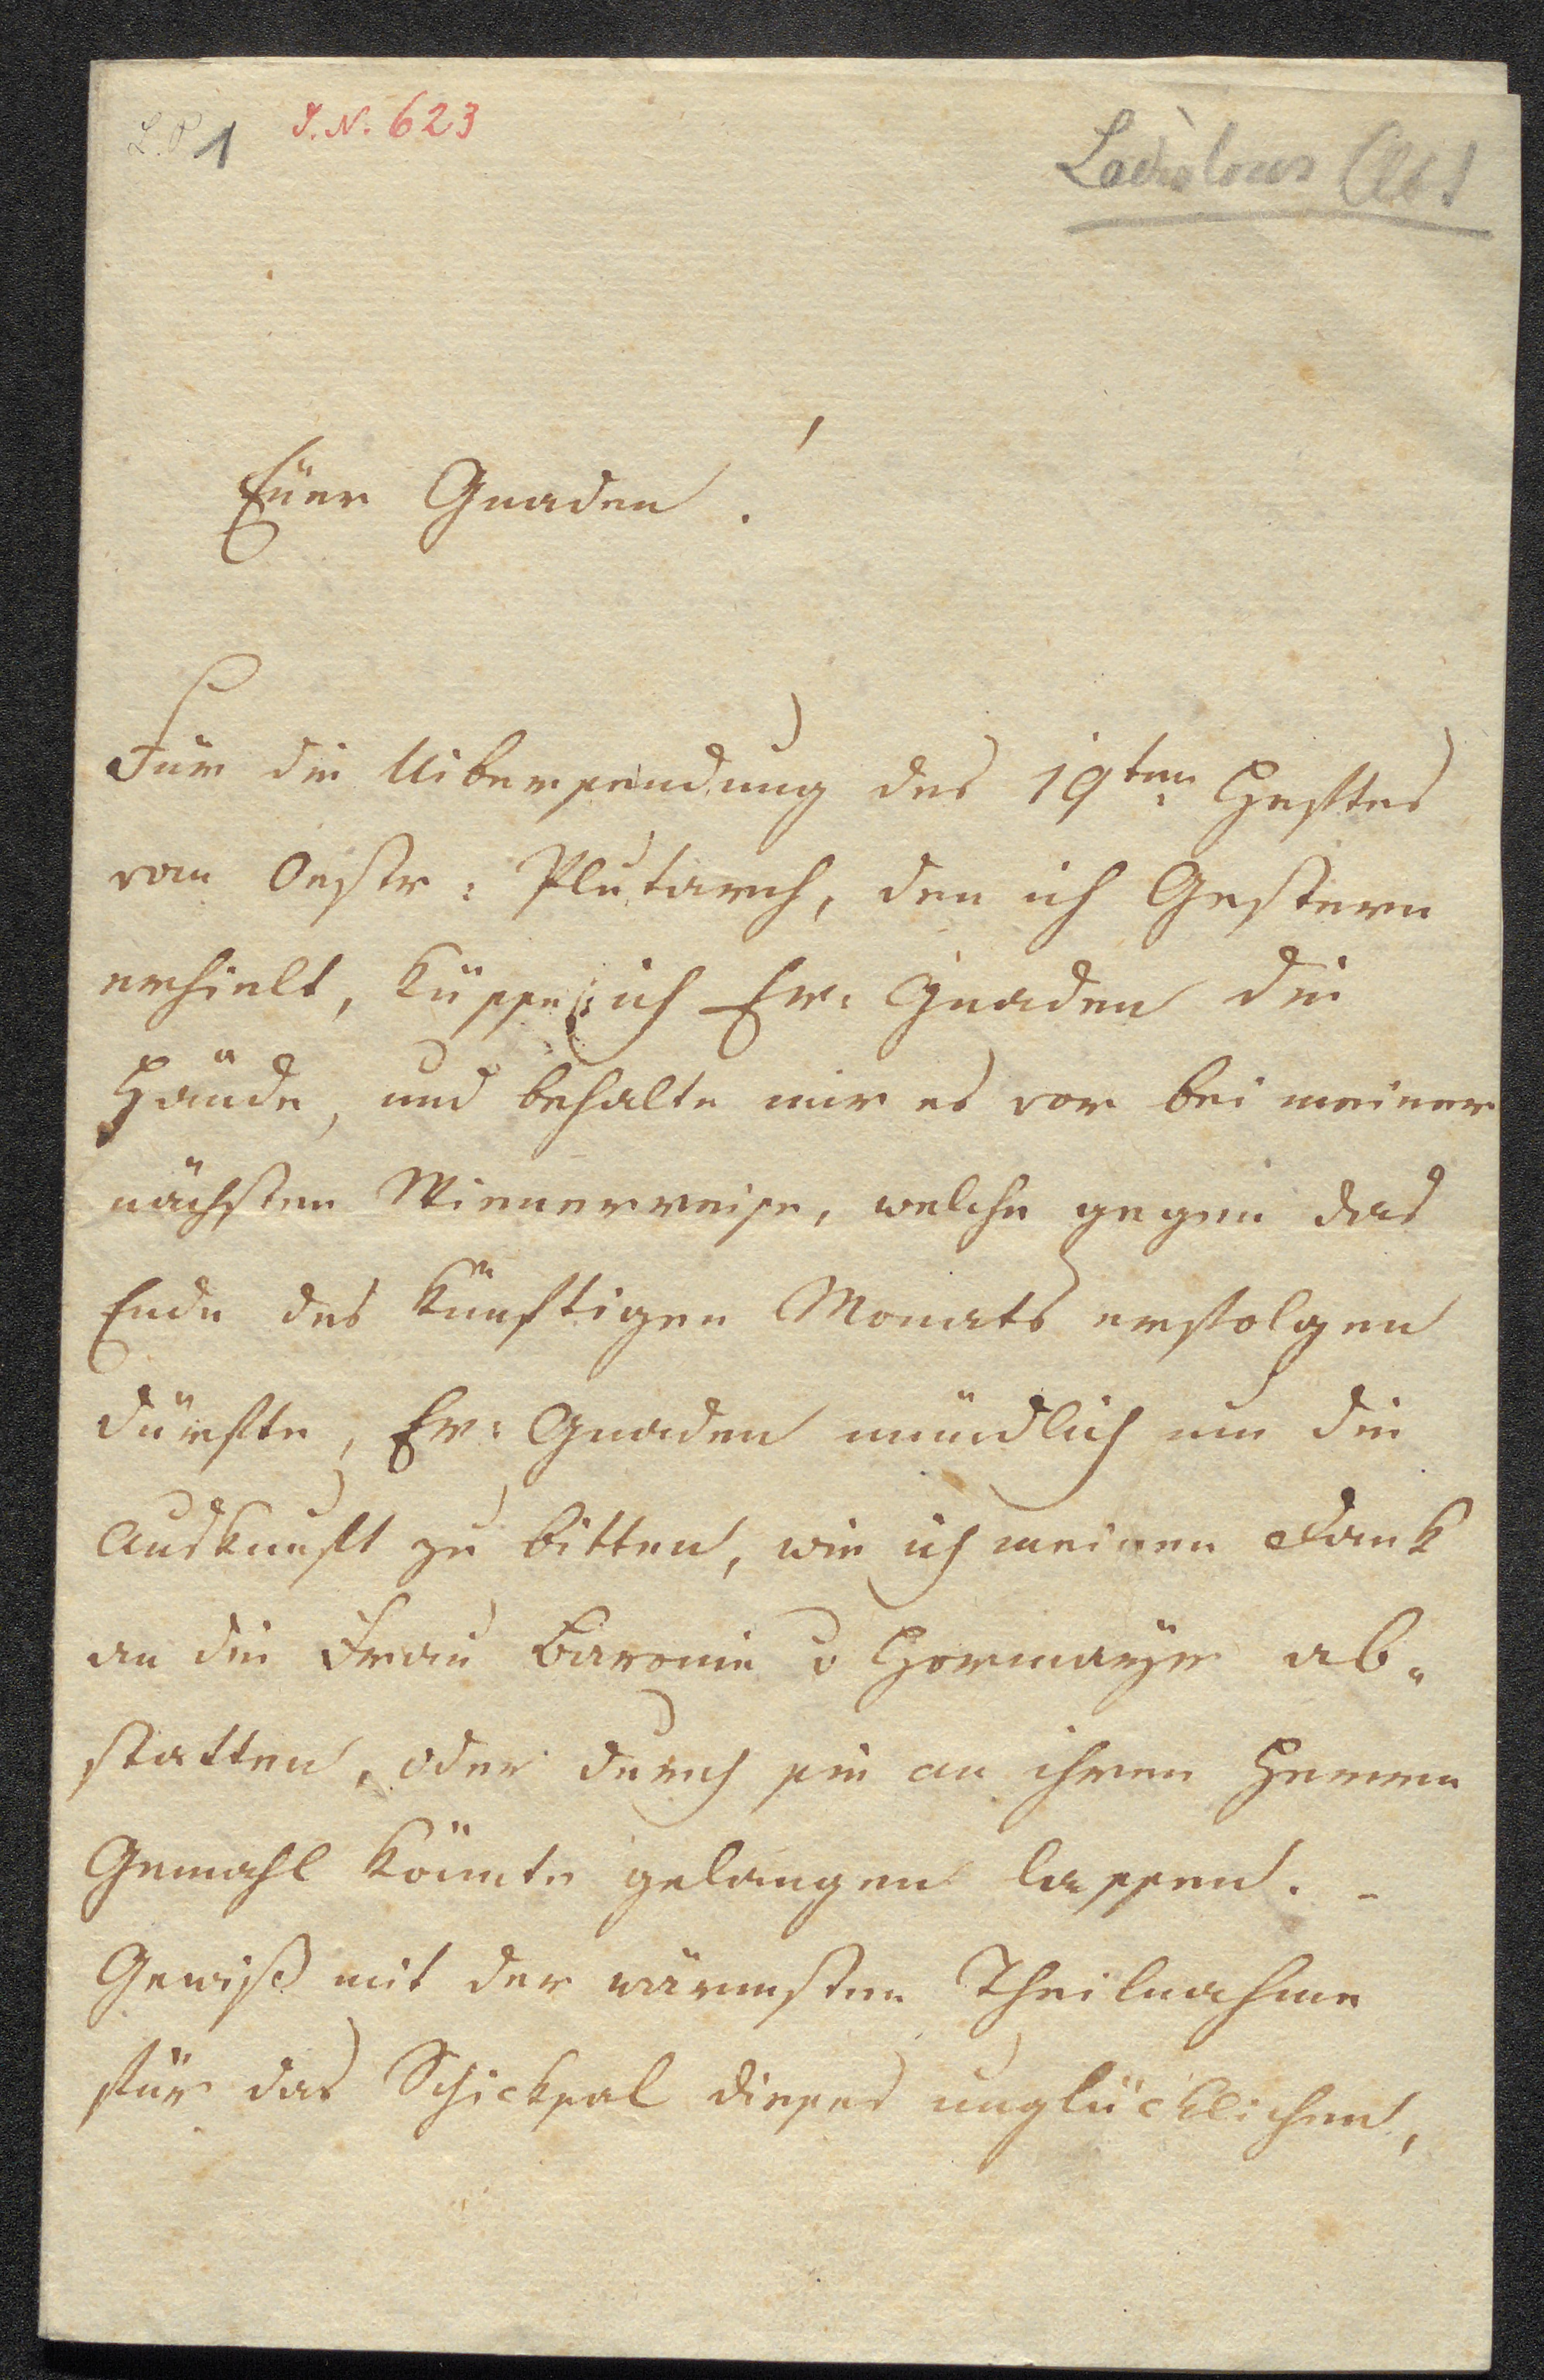 L.P 1 I.N. 623
Ladislaus Abt
Euer Gnaden!
Für die Uibersendung des 19ten Heftes
von Oestr: Plutarch, den ich Gestern
erhielt, küsse ich Er: Gnaden die
Hände, und behalte mir es vor bei meiner
nächsten Wienerreise, welche gegen das
Ende des künftigen Monats erfolgen
dürfte, Er: Gnaden mündlich um die
Auskunft zu bitten, wie ich meinen Dank
an die Frau Baronin v Hormayr ab-
statten, oder durch sie an ihren Herrn
Gemahl könnte gelangen lassen. -
Gewiß mit der wärmsten Theilnahme
für das Schicksal dieses unglücklichen,